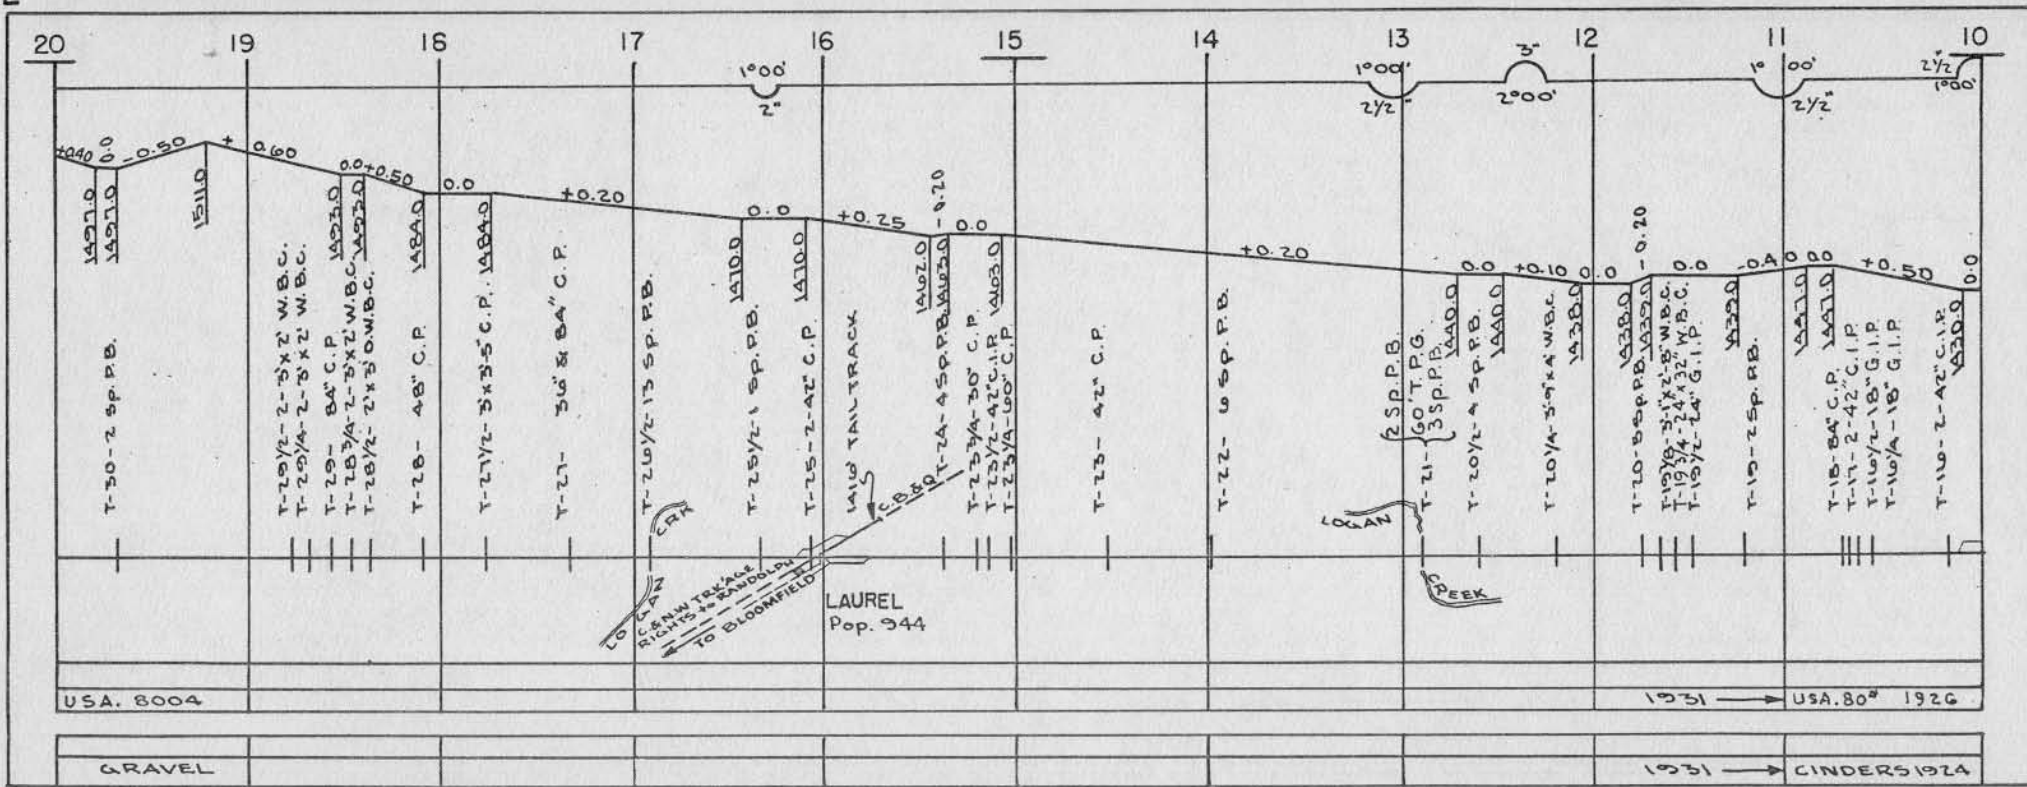 20 19 18 17 16 15 14 13 12 11 10
1°00' 2"
1°00' 2½"
3" 2°00'
1°00' 2½"
2½" 1°00'
+0.40 0.0 -0.50 + 0.60 0.0 +0.50 0.0 +0.20 0.0 +0.25 -0.20 0.0 +0.20 0.0 +0.10 0.0 -0.20 0.0 -0.40 0.0 +0.50 0.0
1497.0
1497.0
1511.0
1493.0
1493.0
1484.0
1484.0
1470.0
1470.0
1462.0
1463.0
1463.0
1440.0
1440.0
1438.0
1438.0
1439.0
1439.0
1447.0
1447.0
1430.0
T-30-2 Sp. P.B.
T-29½-2-3'x2' W.B.C.
T-29¼-2-3'x2' W.B.C.
T-29- 84" C.P.
T-28¾-2-3'x2' W.B.C.
T-28½-2'x3' O.W.B.C.
T-28- 48" C.P.
T-27½-3'x3'-5' C.P.
T-27- 36" & 84" C.P.
T-26½-13 Sp. P.B.
T-25½-1 Sp. P.B.
T-25-2-42" C.P.
1416' TAIL TRACK
T-24-4 Sp. P.B.
T-23¾-30" C.P.
T-23½-42" C.I.P.
T-23¼-60" C.P.
T-23-42" C.P.
T-22-6 Sp. P.B.
T-21-
2 Sp. P.B.
60' T.P.G.
3 Sp. P.B.
T-20½-4 Sp. P.B.
T-20¼-3'9"x4' W.B.C.
T-20-5 Sp. P.B.
T-19¾-24"x32" W.B.C.
T-19½-24" G.I.P.
T-19-2 Sp. P.B.
T-18-84" C.P.
T-17-2-42" C.I.P.
T-16½-18" G.I.P.
T-16¼-18" G.I.P.
T-16-2-42" C.I.P.
LOGAN
CRK
C.B.&Q.
C.&N.W. TRK'AGE
RIGHTS to RANDOLPH
TO BLOOMFIELD
LAUREL
Pop. 944
LOGAN
CREEK
USA. 8004
1931 → USA. 80# 1926
GRAVEL
1931 → CINDERS 1924